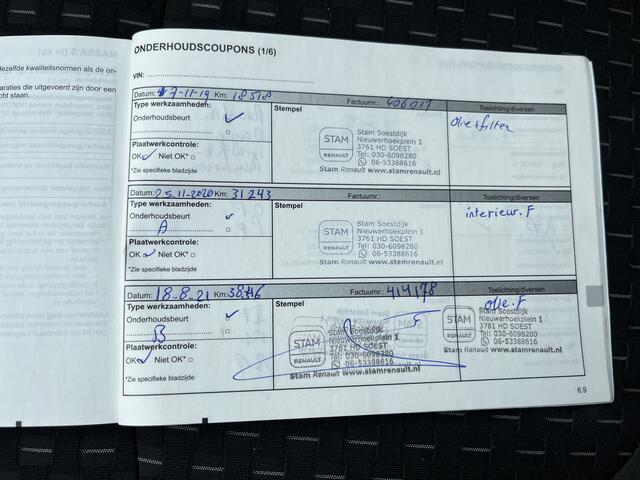 MASSA'S (in kg)
dezelfde kwaliteitsnormen als de on-
araties die uitgevoerd zijn door een
cht staan.
ONDERHOUDSCOUPONS (1/6)
VIN:
Datum: 7-11-19 Km: 18518 Factuurnr.: 406017 Toelichting/diversen
Type werkzaamheden: Stempel
Onderhoudsbeurt ✓
Olie+filter
Plaatwerkcontrole:
OK ✓ Niet OK* □
*Zie specifieke bladzijde
STAM
RENAULT
Stam Soestdijk
Nieuwerhoekplein 1
3761 HD SOEST
Tel: 030-6098280
06-53388616
Stam Renault www.stamrenault.nl
Datum: 25-11-2020 Km: 31243 Factuurnr.: Toelichting/diversen
Type werkzaamheden: Stempel
Onderhoudsbeurt ✓
A □
interieur.F
Plaatwerkcontrole:
OK ✓ Niet OK* □
*Zie specifieke bladzijde
STAM
RENAULT
Stam Soestdijk
Nieuwerhoekplein 1
3761 HD SOEST
Tel: 030-6098280
06-53388616
Stam Renault www.stamrenault.nl
Datum: 18-8-21 Km: Factuurnr.: 414178 Toelichting/diversen
Type werkzaamheden: Stempel
Onderhoudsbeurt ✓
B □
olie.F
Plaatwerkcontrole:
OK ✓ Niet OK* □
*Zie specifieke bladzijde
STAM
RENAULT
Stam Soestdijk
Nieuwerhoekplein 1
3761 HD SOEST
Tel: 030-6098280
06-53388616
Stam Renault www.stamrenault.nl
STAM
RENAULT
Stam Soestdijk
Nieuwerhoekplein 1
3761 HD SOEST
Tel: 030-6098280
06-53388616
Stam Renault www.stamrenault.nl
6.9